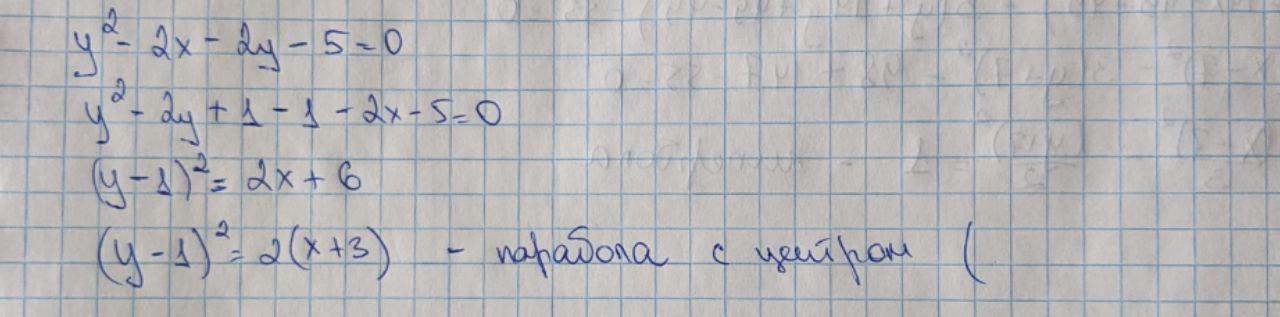 y² - 2x - 2y - 5 = 0
y² - 2y + 1 - 1 - 2x - 5 = 0
(y - 1)² = 2x + 6
(y - 1)² = 2(x + 3) - парабола с центром (